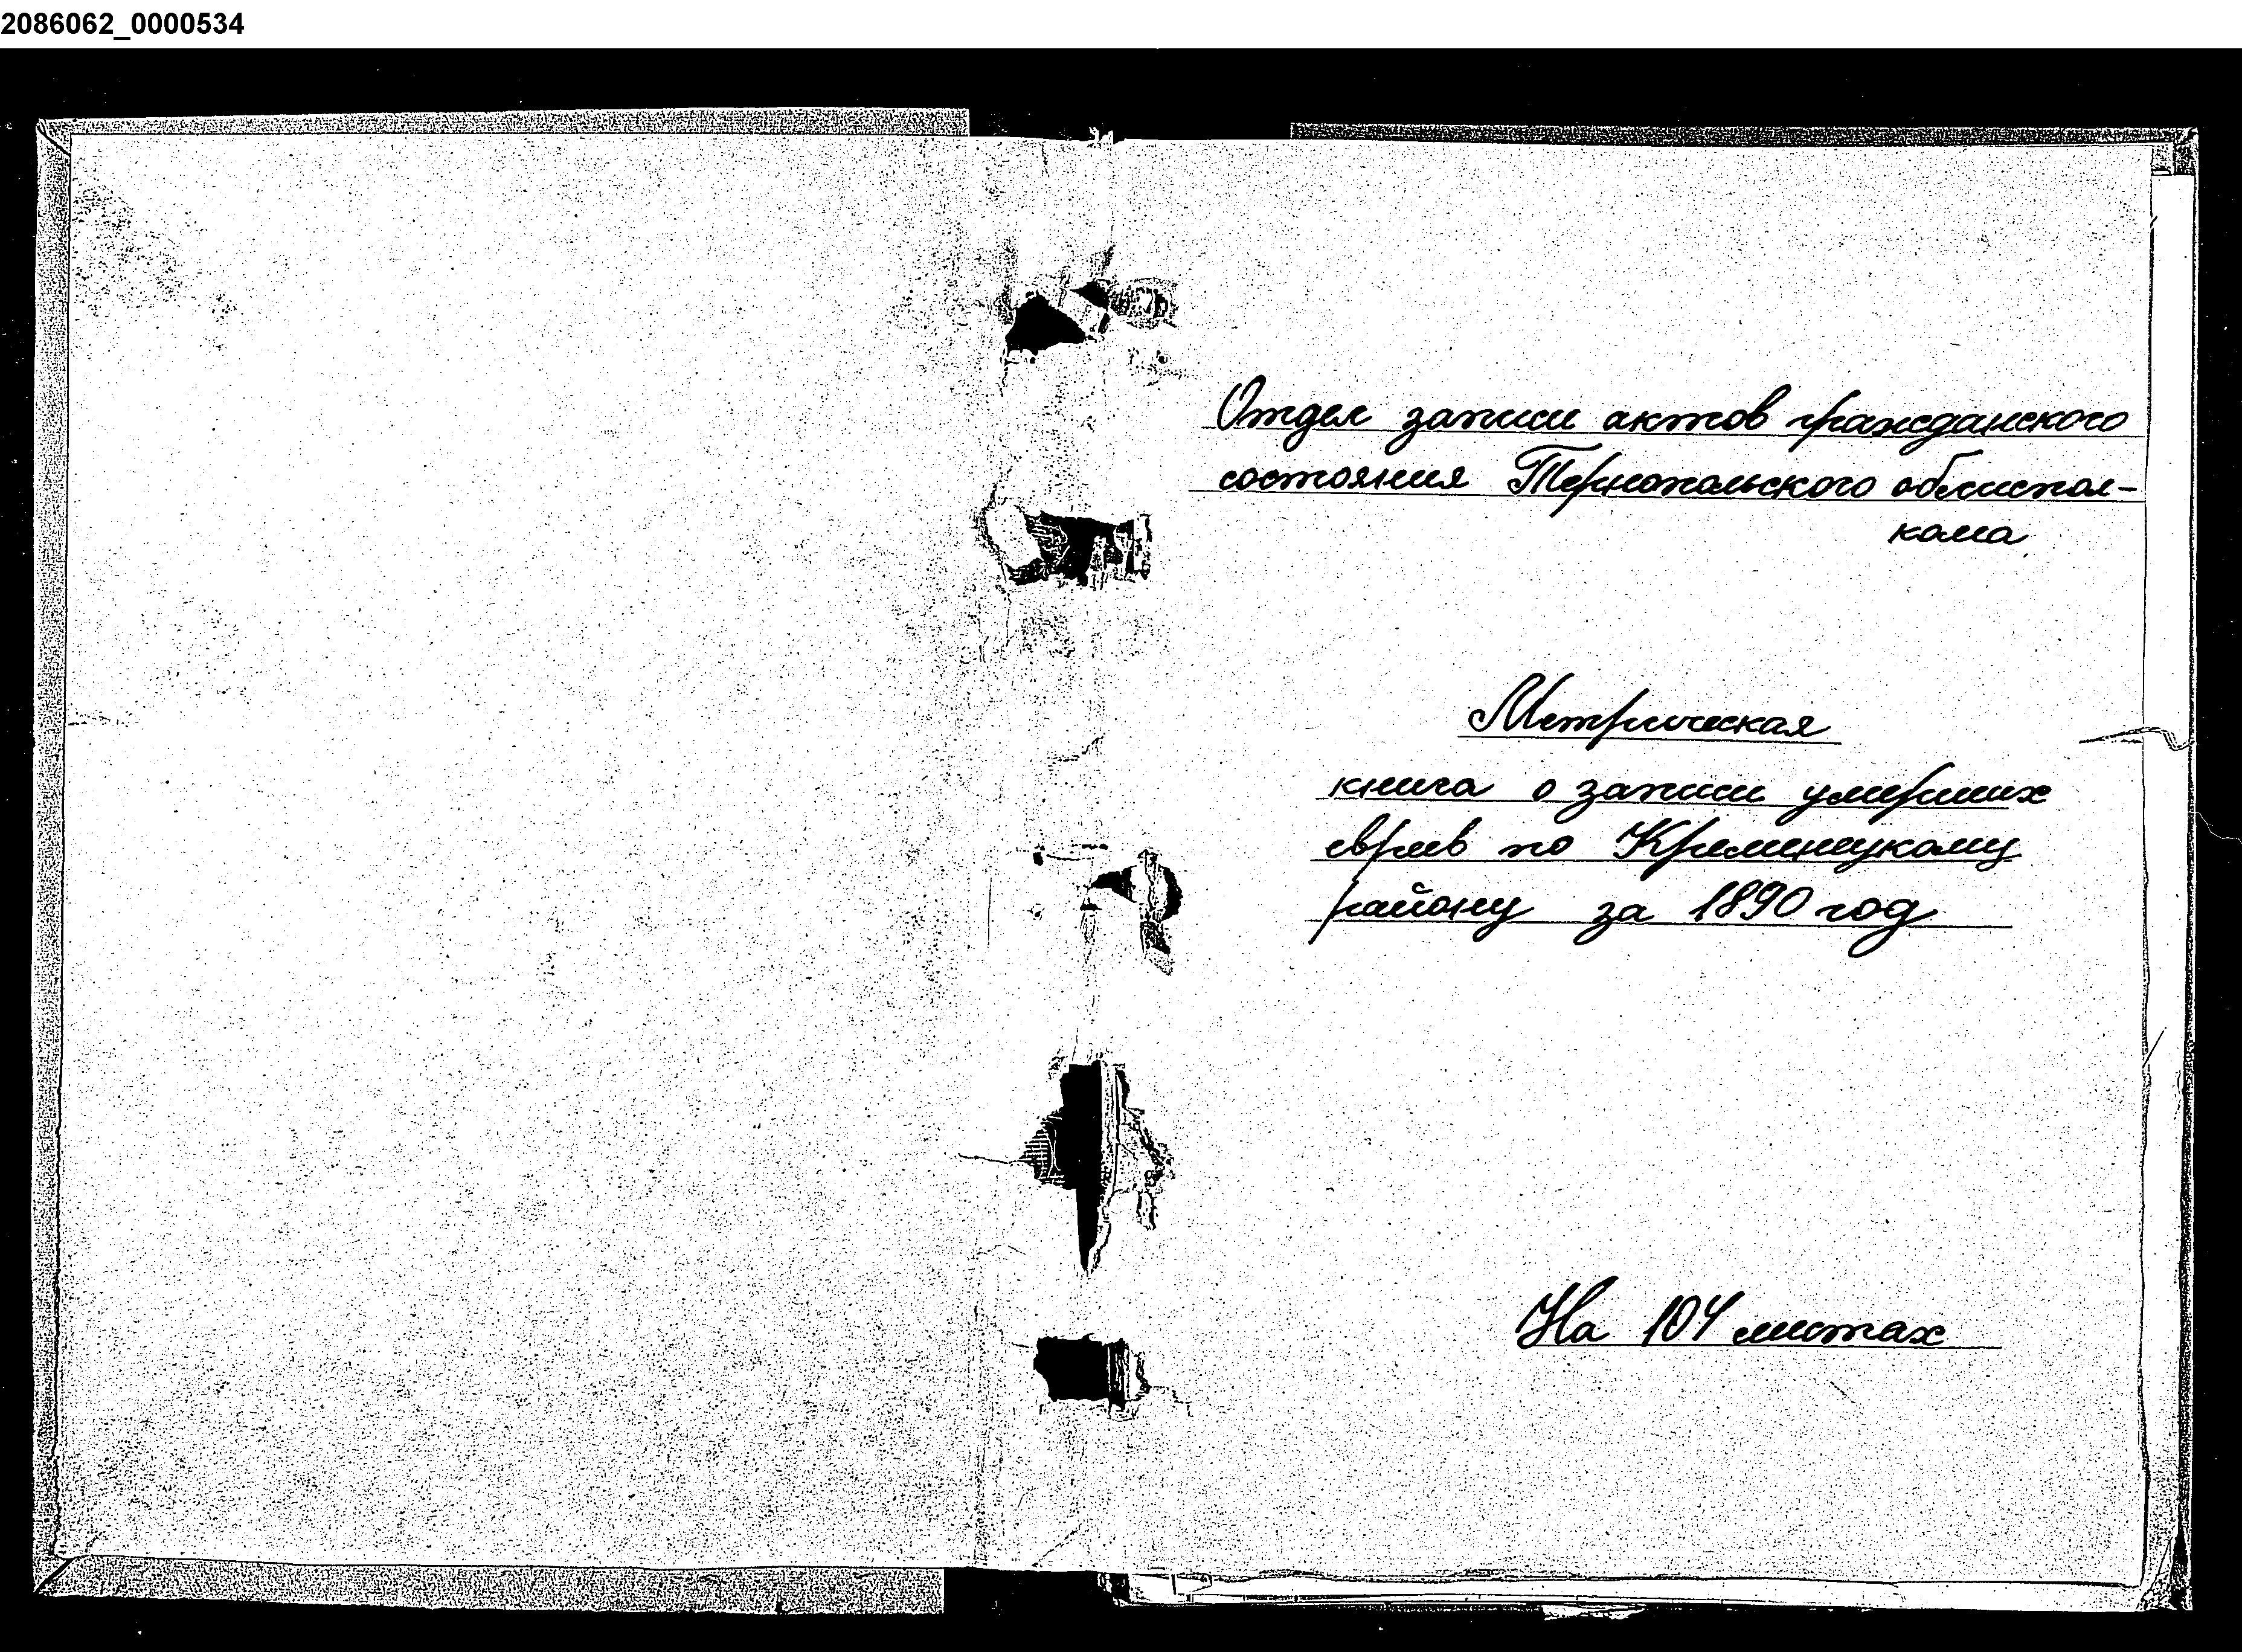 2086062_0000534
Отдел записи актов гражданского
состояния Тернопольского облиспол-
кома
Метрическая
книга о записи умерших
евреев по Кременецкому
району за 1890 год
На 104 листах